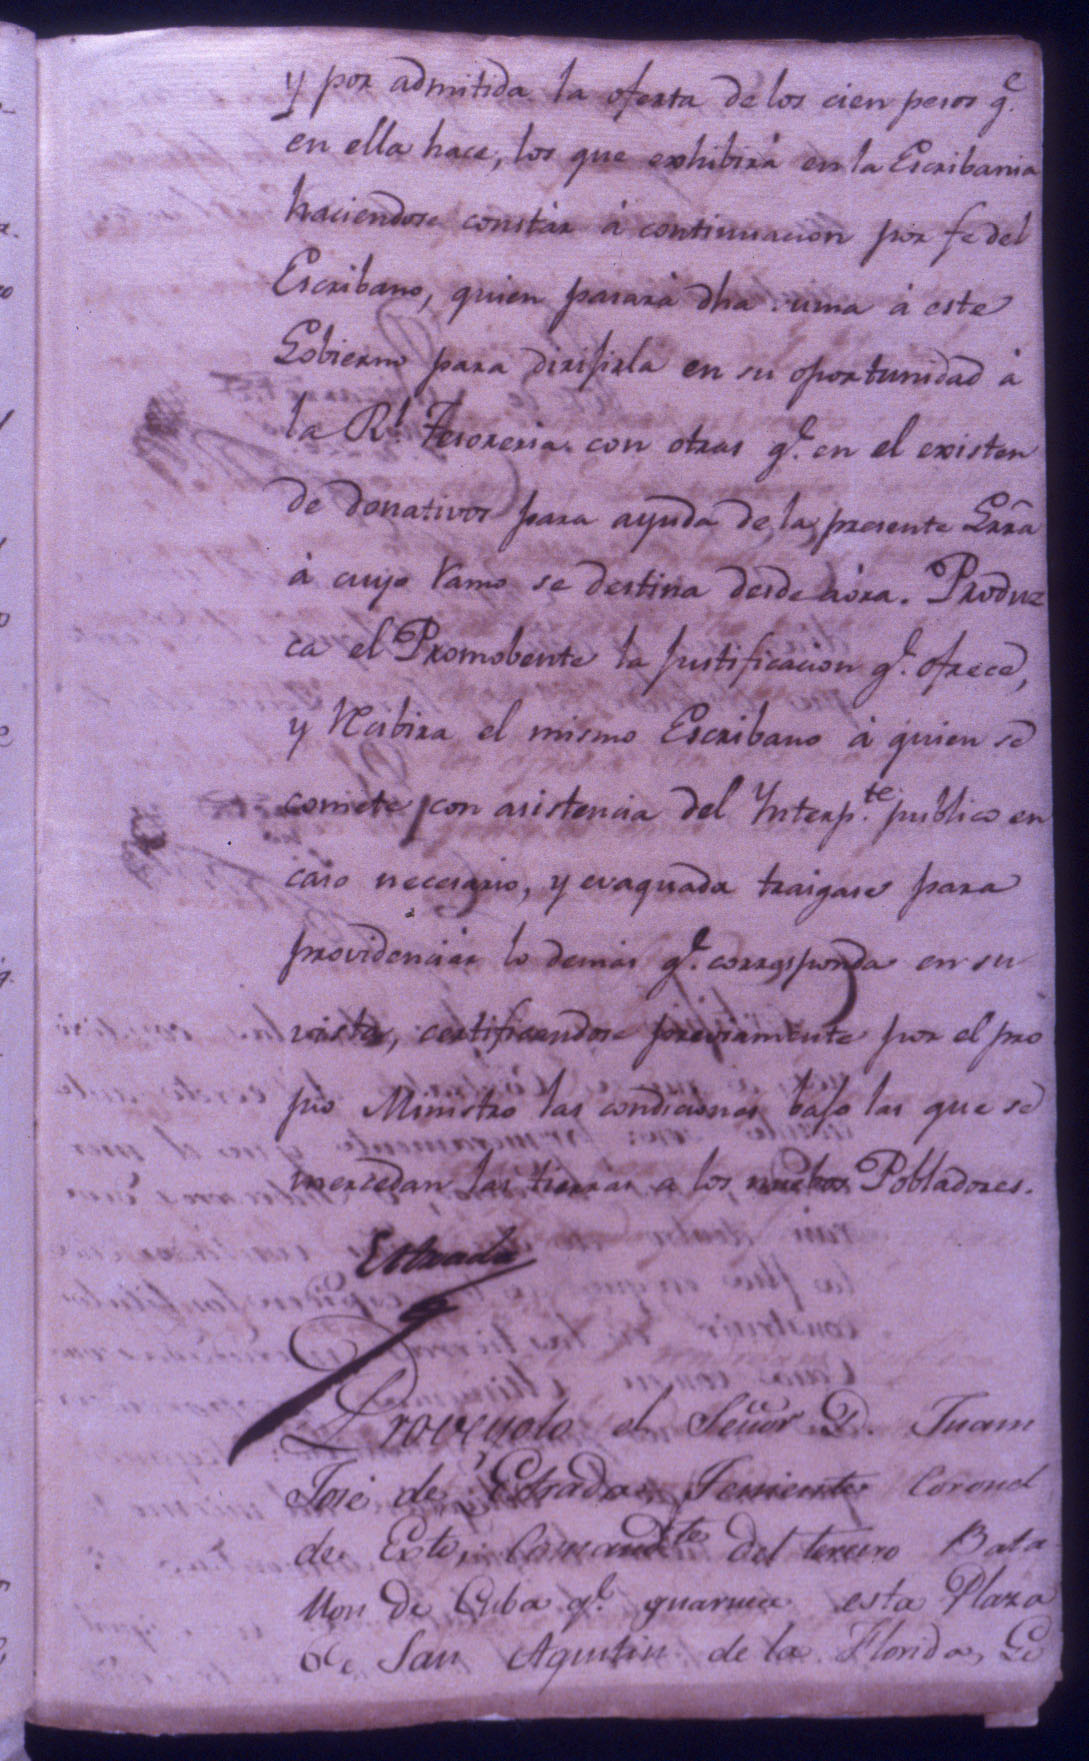 y por admitida la oferta de los cien pesos q.e
en ella hace, los que exhibirá en la Escribania
haciendose constár á continuacion por fe del
Escribano, quien pasará dha suma á este
Gobierno para dirijirla en su oportunidad á
la R.l Tesoreria con otras q.e en el existen
de donativos para ayuda de la presente Grrã
á cuyo ramo se destina desde aóra. Produz
ca el Promobente la justificacion q.e ofrece,
y recibira el mismo Escribano á quien se
comete con asistencia del Ynterp.te publico en
caso necesario, y evaquada traigase para
providenciár lo demas q.e corresponda en su
vista, certificandose previamente por el pro
pio Ministro las condiciones bajo las que se
mercedan las tierras a los nuebos Pobladores.
Estrada
Proveyolo el Señor D. Juan
José de Estrada, Teniente Coronel
de Exto, Comand.te del tercero Bata
llon de Cuba q.e guarnece esta Plaza
de San Agustin de la Florida, Go